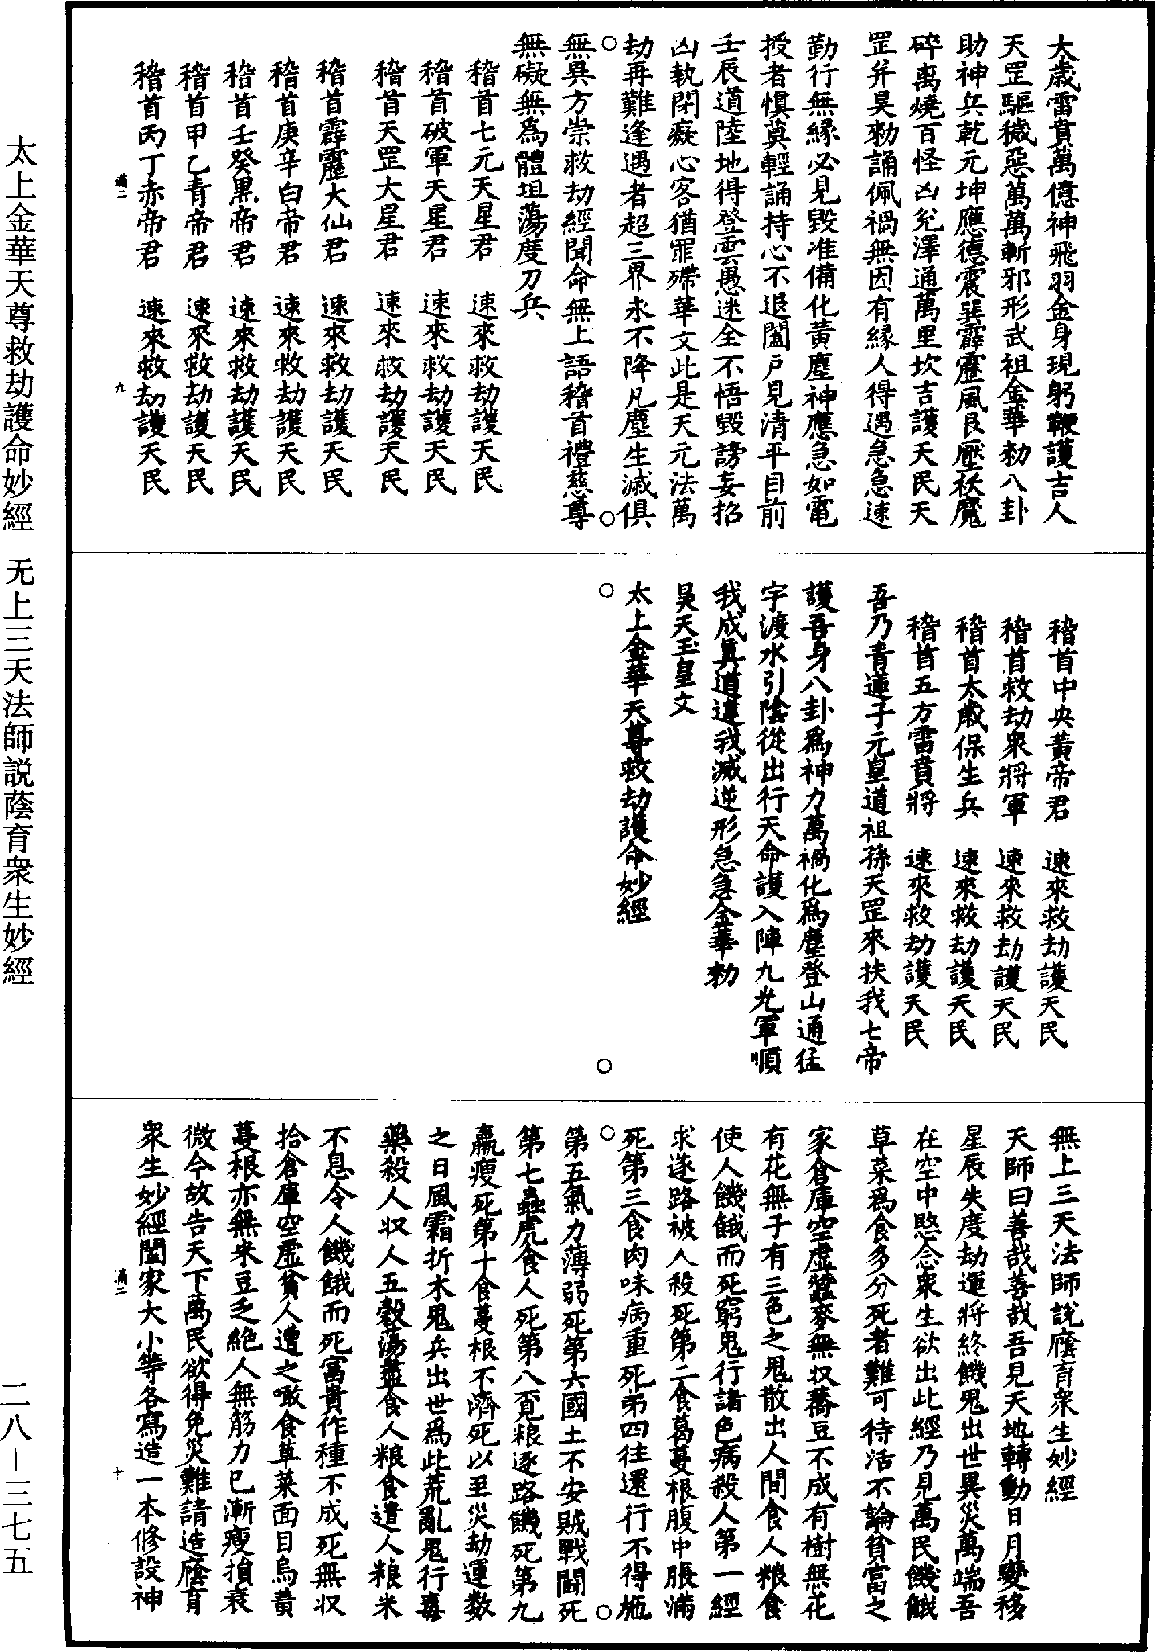 太歲雷賁萬億神飛羽金身現躬鞭護吉人
天罡驅穢惡萬萬斬邪形武祖金華勑八卦
助神兵乾元坤應德震巽霹靂風艮壓妖魔
碎禹燒百怪凶兊澤通萬里坎吉護天民天
罡并昊勑誦佩禍無因有緣人得遇急急速
勤行無緣必見毀准備化黃塵神應急如電
授者慎莫輕誦持心不退闔戶見清平目前
壬辰道陸地得登雲愚迷全不悟毀謗妄招
凶執閉癡心客猶罪殢華文此是天元法萬
劫再難逢遇者超三界永不降凡塵生滅俱
無異方崇救劫經聞命無上語稽首禮慈尊
無礙無為體坦蕩度刀兵
稽首七元天星君　速來救劫護天民
稽首破軍天星君　速來救劫護天民
稽首天罡大星君　速來救劫護天民
稽首霹靂大仙君　速來救劫護天民
稽首庚辛白帝君　速來救劫護天民
稽首壬癸黑帝君　速來救劫護天民
稽首甲乙青帝君　速來救劫護天民
稽首丙丁赤帝君　速來救劫護天民
九
稽首中央黃帝君　速來救劫護天民
稽首救劫衆將軍　速來救劫護天民
稽首太歲保生兵　速來救劫護天民
稽首五方雷賁將　速來救劫護天民
吾乃青蓮子元皇道祖孫天罡來扶我七帝
護吾身八卦為神力萬禍化為塵登山通猛
宇渡水引陰從出行天命護入陣九光軍順
我成真道違我滅逆形急急金華勑
昊天玉皇文
太上金華天尊救劫護命妙經
無上三天法師說廕育衆生妙經
天師曰善哉善哉吾見天地轉動日月變移
星辰失度劫運將終餓鬼出世異災萬端吾
在空中愍念衆生欲出此經乃見萬民饑餓
草菜為食多分死者難可待活不論貧富之
家倉庫空虛蠶麥無收蕎豆不成有樹無花
有花無子有三色之鬼散出人間食人粮食
使人饑餓而死窮鬼行諸色病殺人第一經
求遂路被人殺死第二食葛蔓根腹中脹滿
死第三食肉味病重死第四往還行不得抛
第五氣力薄弱死第六國土不安賊戰鬭死
第七蟲虎食人死第八覓粮逐路饑死第九
羸瘦死第十食蔓根不濟死以至災劫運數
之日風霜折木鬼兵出世為此荒亂鬼行毒
藥殺人収人五穀蕩盡食人粮食遣人粮米
不息令人饑餓而死富貴作種不成死無収
拾倉庫空虛貧人遭之噉食草菜面目烏黃
蔓根亦無米豆乏絕人無筋力已漸瘦損衰
微今故告天下萬民欲得免災難請造廕育
衆生妙經闔家大小等各寫造一本修設神
十
太上金華天尊救劫護命妙經　无上三天法師説蔭育衆生妙經
二八—三七五